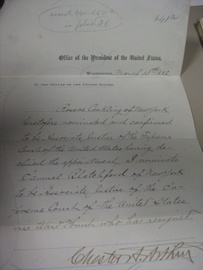 Office of the President of the United States.
Washington, March 13th 1882
To the Senate of the United States.
Roscoe Conkling of New York
heretofore nominated and confirmed
to be Associate Justice of the Supreme
Court of the United States having de
clined the appointment, I nominate
Samuel Blatchford of New York
to be Associate Justice of the Su
preme Court of the United States
vice Ward Hunt who has resigned.
Chester A. Arthur